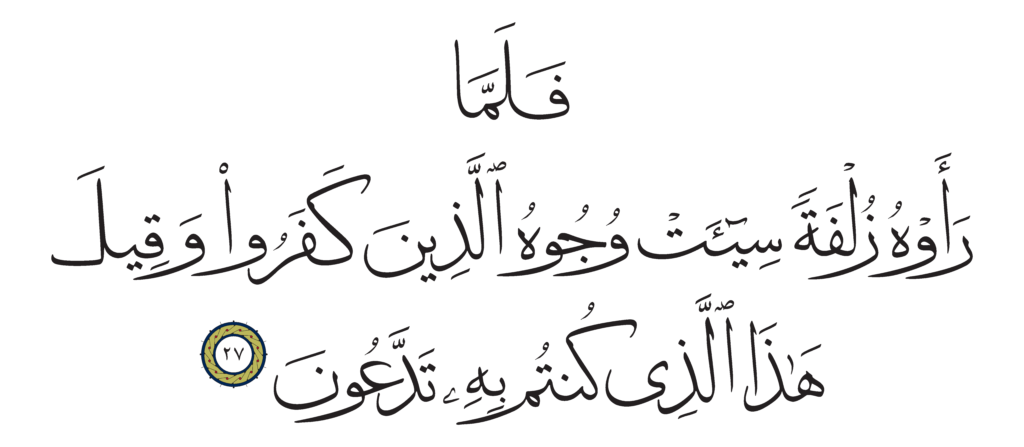 فَلَمَّا
رَأَوۡهُ زُلۡفَةٗ سِيٓـَٔتۡ وُجُوهُ ٱلَّذِينَ كَفَرُواْ وَقِيلَ
هَٰذَا ٱلَّذِي كُنتُم بِهِۦ تَدَّعُونَ ٢٧